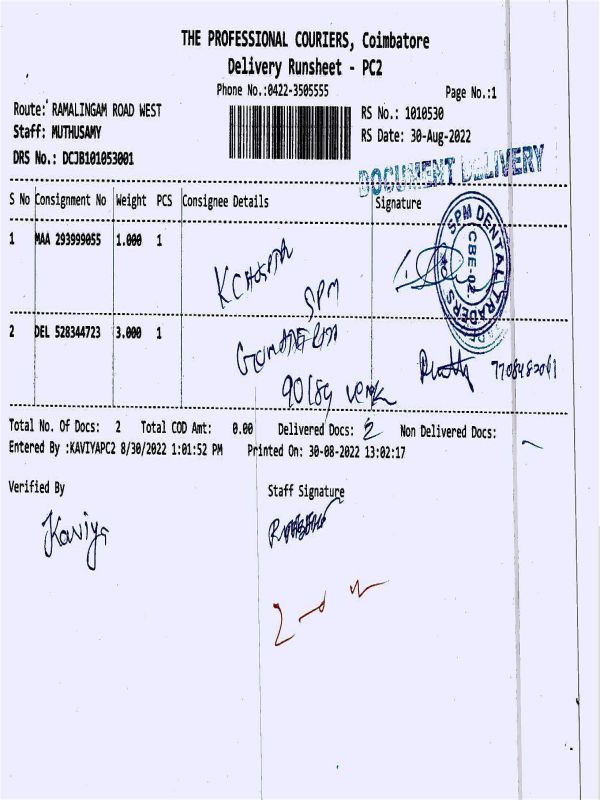 THE PROFESSIONAL COURIERS, Coimbatore
Delivery Runsheet - PC2
Phone No.:0422-3505555
Page No.:1
Route: RAMALINGAM ROAD WEST
RS No.: 1010530
Staff: MUTHUSAMY
RS Date: 30-Aug-2022
DRS No.: DCJB101053001
DOCUMENT DELIVERY
S No Consignment No Weight PCS Consignee Details Signature
SPM DENTAL TRADERS
CBE-02
1 MAA 293999055 1.000 1
SPM
2 DEL 528344723 3.000 1
Total No. Of Docs: 2 Total COD Amt: 0.00 Delivered Docs: 2 Non Delivered Docs:
Entered By :KAVIYAPC2 8/30/2022 1:01:52 PM Printed On: 30-08-2022 13:02:17
Verified By Staff Signature
Kaviya